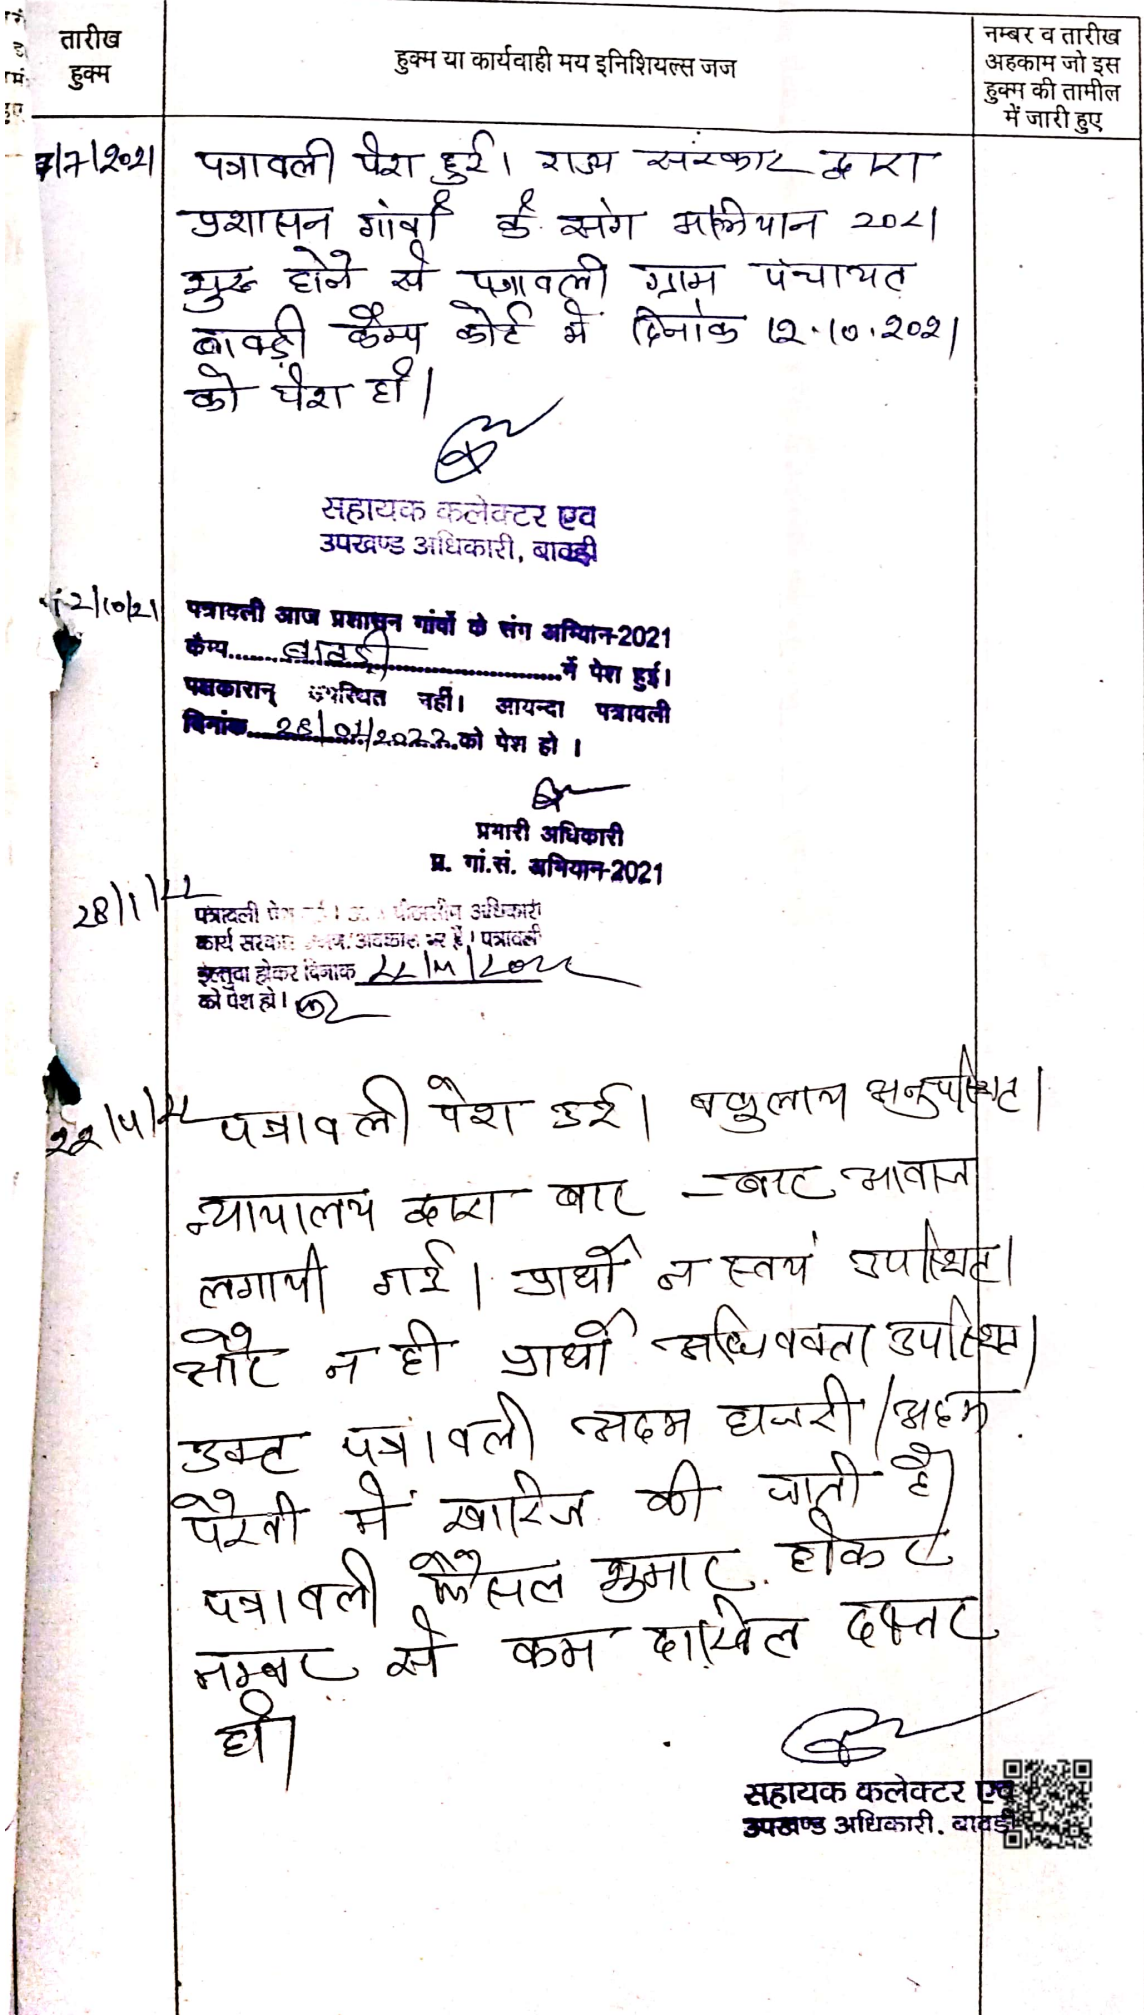 तारीख
हुक्म
हुक्म या कार्यवाही मय इनिशियल्स जज
नम्बर व तारीख
अहकाम जो इस
हुक्म की तामील
में जारी हुए
7/7/2021
पत्रावली पेश हुई। राज्य सरकार द्वारा
प्रशासन गांवों के संग अभियान 2021
शुरू होने से पत्रावली ग्राम पंचायत
बावड़ी कैम्प कोर्ट में दिनांक 12.10.2021
को पेश हो।
सहायक कलेक्टर एव
उपखण्ड अधिकारी, बावड़ी
12/10/21
पत्रावली आज प्रशासन गांवों के संग अभियान-2021
कैम्प.....बावड़ी.....में पेश हुई।
पक्षकारान् उपस्थित नहीं। आयन्दा पत्रावली
दिनांक....28/01/2022.को पेश हो ।
प्रभारी अधिकारी
प्र. गां.सं. अभियान-2021
28/1/22
पत्रावली पेश हुई। आज पीठासीन अधिकारी
कार्य सरकार अवकाश पर है। पत्रावली
होकर दिनांक 22/4/2022
को पेश हो।
22/4/22
पत्रावली पेश हुई। वकुलाय अनुपस्थित।
न्यायालय द्वारा बार - बार आवाज
लगायी गई। प्रार्थी न स्वयं उपस्थित।
और न ही प्रार्थी अधिवक्ता उपस्थित।
उक्त पत्रावली अदम हाजरी/अदम
पैरवी में खारिज की जाती है।
पत्रावली फैसल शुमार होकर
नम्बर से कम दाखिल दफ्तर
हो।
सहायक कलेक्टर एव
उपखण्ड अधिकारी. बावड़ी